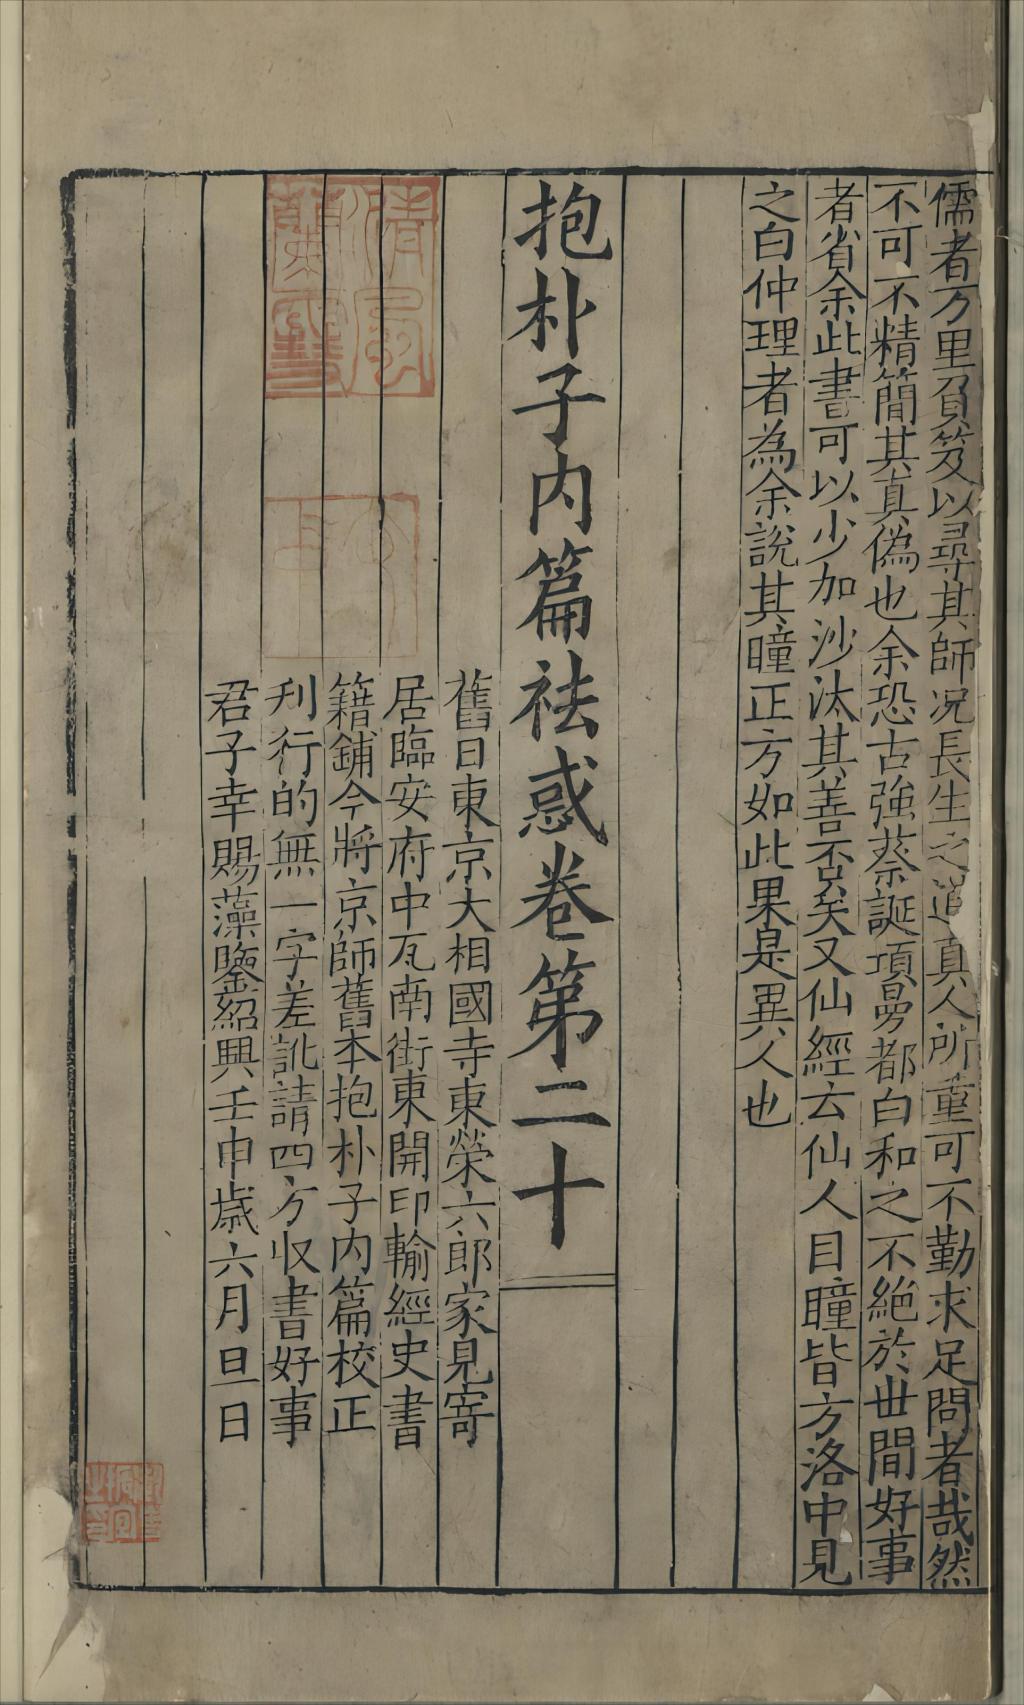 儒者万里負笈以尋其師况長生之道真人所重可不勤求足問者哉然
不可不精簡其真偽也余恐古強蔡誕項曼都白和之不絕於丗間好事
者省余此書可以少加沙汰其善否矣又仙經云仙人目瞳皆方洛中見
之白仲理者為余說其瞳正方如此果是異人也
抱朴子内篇祛惑卷第二十
舊日東京大相國寺東榮六郎家見寄
居臨安府中瓦南街東開印輸經史書
籍鋪今將京師舊本抱朴子内篇校正
刋行的無一字差訛請四方収書好事
君子幸賜藻鑒紹興壬申歳六月旦日